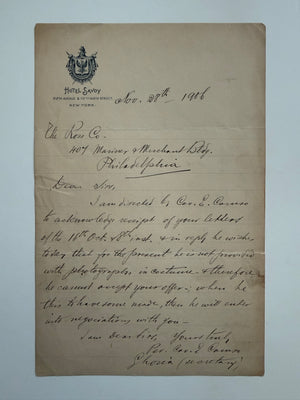 HOTEL SAVOY
FIFTH AVENUE & 59TH STREET
NEW YORK.
Nov. 28th 1906
The Ross Co.
407 Mariner & Merchant Bldg.
Philadelphia
Dear Sirs,
I am directed by Cav. E. Caruso
to acknowledge receipt of your letters
of the 16th Oct. & 8th inst. & in reply he wishes
to say that for the present he is not provided
with photographs in costume & therefore
he cannot accept your offer; when he
has to have some made, then he will enter
into negociations with you.
I am Dear Sirs Yours truly,
Per. Cav. E. Caruso
(Secretary)